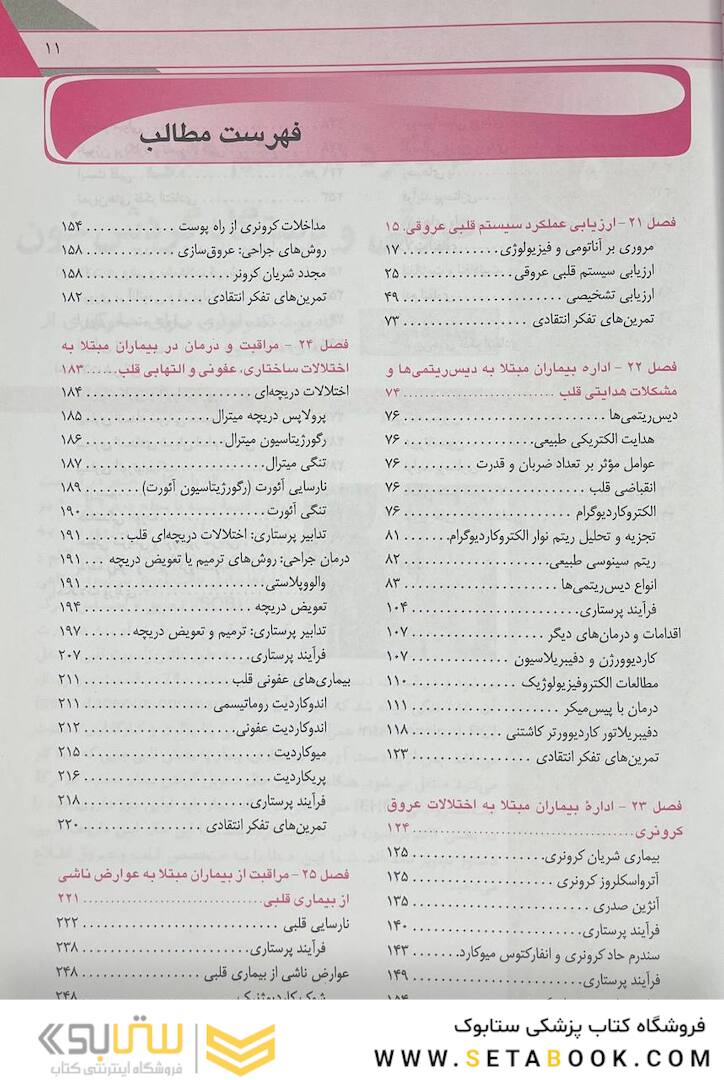 ۱۱
فهرست مطالب
فصل ۲۱ - ارزیابی عملکرد سیستم قلبی عروقی. ۱۵
مروری بر آناتومی و فیزیولوژی ........ ۱۷
ارزیابی سیستم قلبی عروقی ........ ۲۵
ارزیابی تشخیصی ........ ۴۹
تمرین‌های تفکر انتقادی ........ ۷۳
فصل ۲۲ - اداره بیماران مبتلا به دیس‌ریتمی‌ها و
مشکلات هدایتی قلب ........ ۷۴
دیس‌ریتمی‌ها ........ ۷۶
هدایت الکتریکی طبیعی ........ ۷۶
عوامل مؤثر بر تعداد ضربان و قدرت ........ ۷۶
انقباضی قلب ........ ۷۶
الکتروکاردیوگرام ........ ۷۶
تجزیه و تحلیل ریتم نوار الکتروکاردیوگرام ........ ۸۱
ریتم سینوسی طبیعی ........ ۸۲
انواع دیس‌ریتمی‌ها ........ ۸۳
فرآیند پرستاری ........ ۱۰۴
اقدامات و درمان‌های دیگر ........ ۱۰۷
کاردیوورژن و دفیبریلاسیون ........ ۱۰۷
مطالعات الکتروفیزیولوژیک ........ ۱۱۰
درمان با پیس‌میکر ........ ۱۱۱
دفیبریلاتور کاردیوورتر کاشتنی ........ ۱۱۸
تمرین‌های تفکر انتقادی ........ ۱۲۳
فصل ۲۳ - ادارهٔ بیماران مبتلا به اختلالات عروق
کرونری ........ ۱۲۴
بیماری شریان کرونری ........ ۱۲۵
آترواسکلروز کرونری ........ ۱۲۵
آنژین صدری ........ ۱۳۵
فرآیند پرستاری ........ ۱۴۰
سندرم حاد کرونری و انفارکتوس میوکارد ........ ۱۴۳
فرآیند پرستاری ........ ۱۴۹
مداخلات کرونری از راه پوست ........ ۱۵۴
روش‌های جراحی: عروق‌سازی ........ ۱۵۸
مجدد شریان کرونر ........ ۱۵۸
تمرین‌های تفکر انتقادی ........ ۱۸۲
فصل ۲۴ - مراقبت و درمان در بیماران مبتلا به
اختلالات ساختاری، عفونی و التهابی قلب ..... ۱۸۳
اختلالات دریچه‌ای ........ ۱۸۴
پرولاپس دریچه میترال ........ ۱۸۵
رگورژیتاسیون میترال ........ ۱۸۶
تنگی میترال ........ ۱۸۷
نارسایی آئورت (رگورژیتاسیون آئورت) ........ ۱۸۹
تنگی آئورت ........ ۱۹۰
تدابیر پرستاری: اختلالات دریچه‌ای قلب ..... ۱۹۱
درمان جراحی: روش‌های ترمیم یا تعویض دریچه ... ۱۹۱
والووپلاستی ........ ۱۹۱
تعویض دریچه ........ ۱۹۴
تدابیر پرستاری: ترمیم و تعویض دریچه ........ ۱۹۷
فرآیند پرستاری ........ ۲۰۷
بیماری‌های عفونی قلب ........ ۲۱۱
اندوکاردیت روماتیسمی ........ ۲۱۱
اندوکاردیت عفونی ........ ۲۱۲
میوکاردیت ........ ۲۱۵
پریکاردیت ........ ۲۱۶
فرآیند پرستاری ........ ۲۱۸
تمرین‌های تفکر انتقادی ........ ۲۲۰
فصل ۲۵ - مراقبت از بیماران مبتلا به عوارض ناشی
از بیماری قلبی ........ ۲۲۱
نارسایی قلبی ........ ۲۲۲
فرآیند پرستاری ........ ۲۳۸
عوارض ناشی از بیماری قلبی ........ ۲۴۸
شوک کاردیوژنیک ........ ۲۴۸
فروشگاه کتاب پزشکی ستابوک
WWW.SETABOOK.COM
ستابوک
فروشگاه اینترنتی کتاب